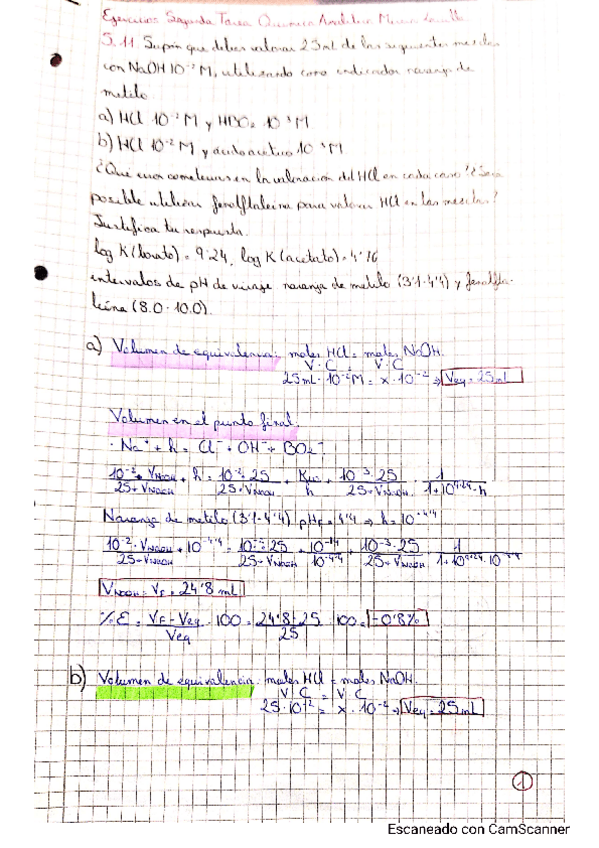 Ejercicios Segunda Tarea Química Analítica
5.11. Supón que debes valorar 25mL de las siguientes mezclas
con NaOH 10⁻² M, utilizando como indicador naranja de
metilo.
a) HCl 10⁻² M y HBO₂ 10⁻³ M
b) HCl 10⁻² M y ácido acético 10⁻³ M
¿Qué error cometerías en la valoración del HCl en cada caso? ¿Sería
posible utilizar fenolftaleína para valorar HCl en las mezclas?
Justifica tu respuesta.
log K (borato) = 9'24, log K (acetato) = 4'76
intervalos de pH de viraje naranja de metilo (3'1-4'4) y fenolfta-
leína (8.0-10.0).
a) Volumen de equivalencia: moles HCl = moles NaOH.
V · C = V · C
25mL · 10⁻² M = x · 10⁻² → Veq = 25mL
Volumen en el punto final:
· Na⁺ + h = Cl⁻ + OH⁻ + BO₂⁻
10⁻² · VNaOH / 25 + VNaOH + h = 10⁻² · 25 / 25 + VNaOH + Kw / h + 10⁻³ · 25 / 25 + VNaOH · 1 / 1 + 10^9'24 · h
Naranja de metilo (3'1-4'4) pHf = 4'4 → h = 10^-4'4
10⁻² · VNaOH / 25 + VNaOH + 10^-4'4 = 10⁻² · 25 / 25 + VNaOH + 10⁻¹⁴ / 10^-4'4 + 10⁻³ · 25 / 25 + VNaOH · 1 / 1 + 10^9'24 · 10^-4'4
VNaOH = Vf = 24'8 mL
% E = Vf - Veq / Veq · 100 = 24'8 - 25 / 25 · 100 = -0'8%
b) Volumen de equivalencia: moles HCl = moles NaOH.
V · C = V · C
25 · 10⁻² = x · 10⁻² → Veq = 25mL
1
Escaneado con CamScanner